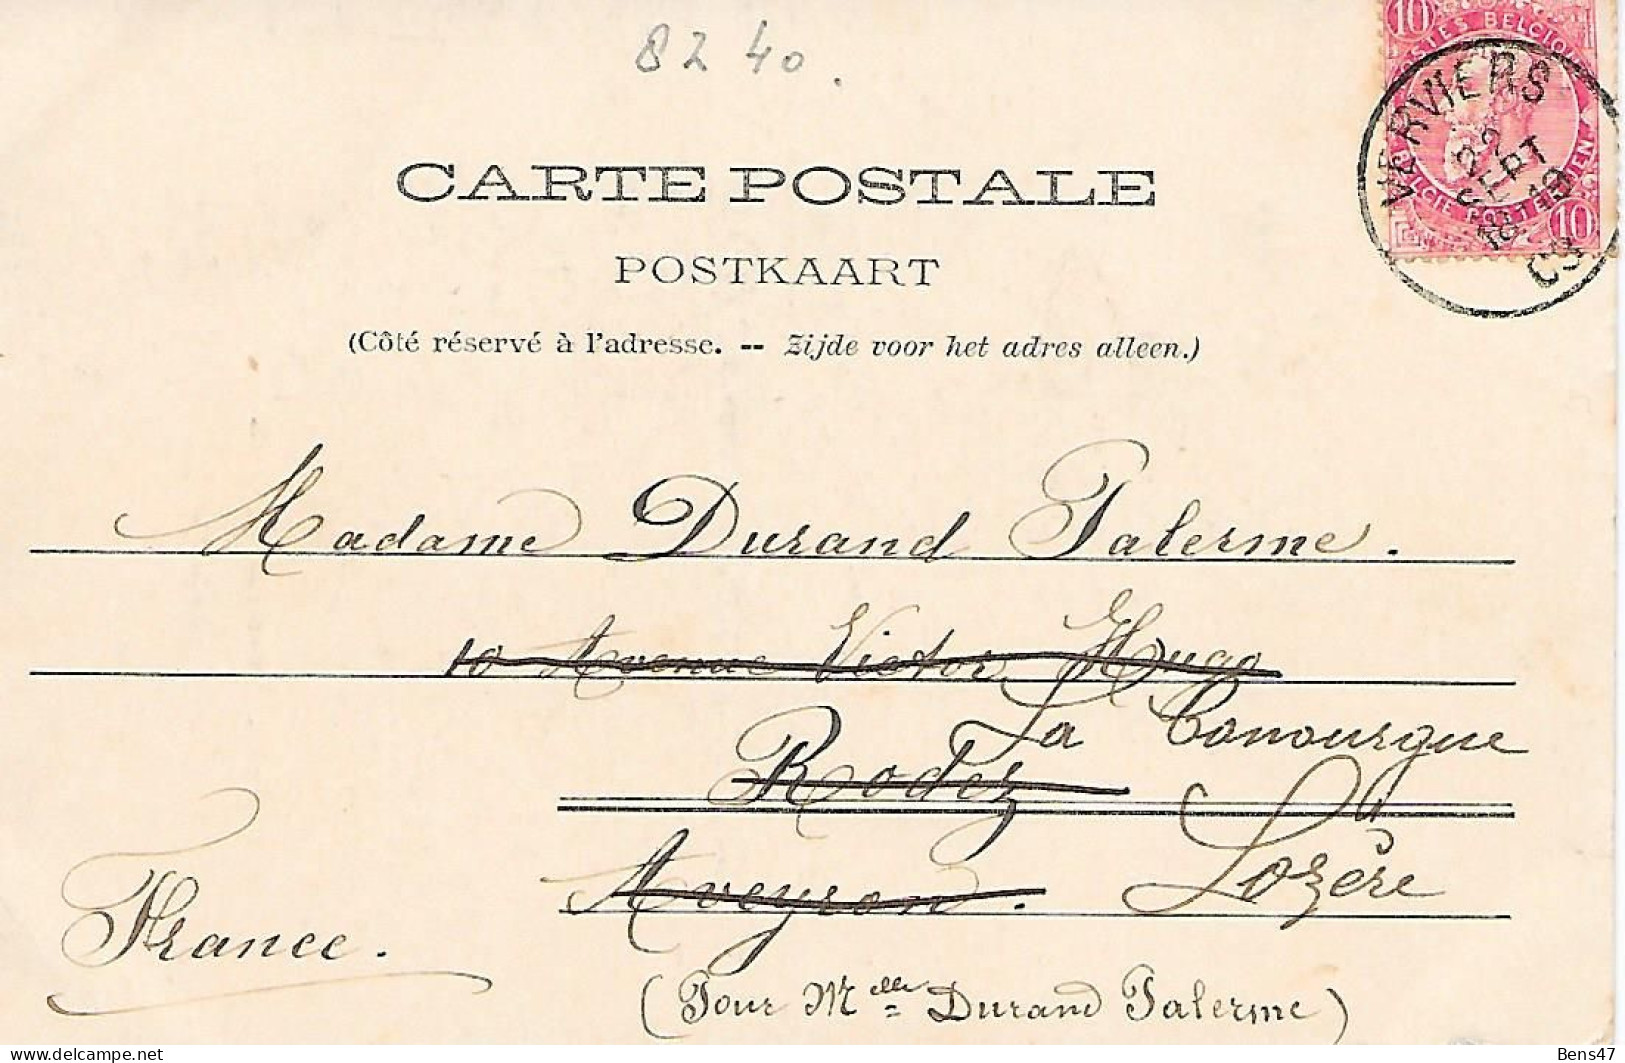 82 40.
10 10
POSTES BELGIQUE
BELGIE POSTERIJEN
10
VERVIERS
22
SEPT
CARTE POSTALE
POSTKAART
(Côté réservé à l'adresse. -- Zijde voor het adres alleen.)
Madame Durand Palerme.
10 Avenue Victor Hugo
La Canourgue
Rodez
Lozère
Aveyron.
France.
(Pour Melle Durand Palerme)
delcampe.net
Bens47